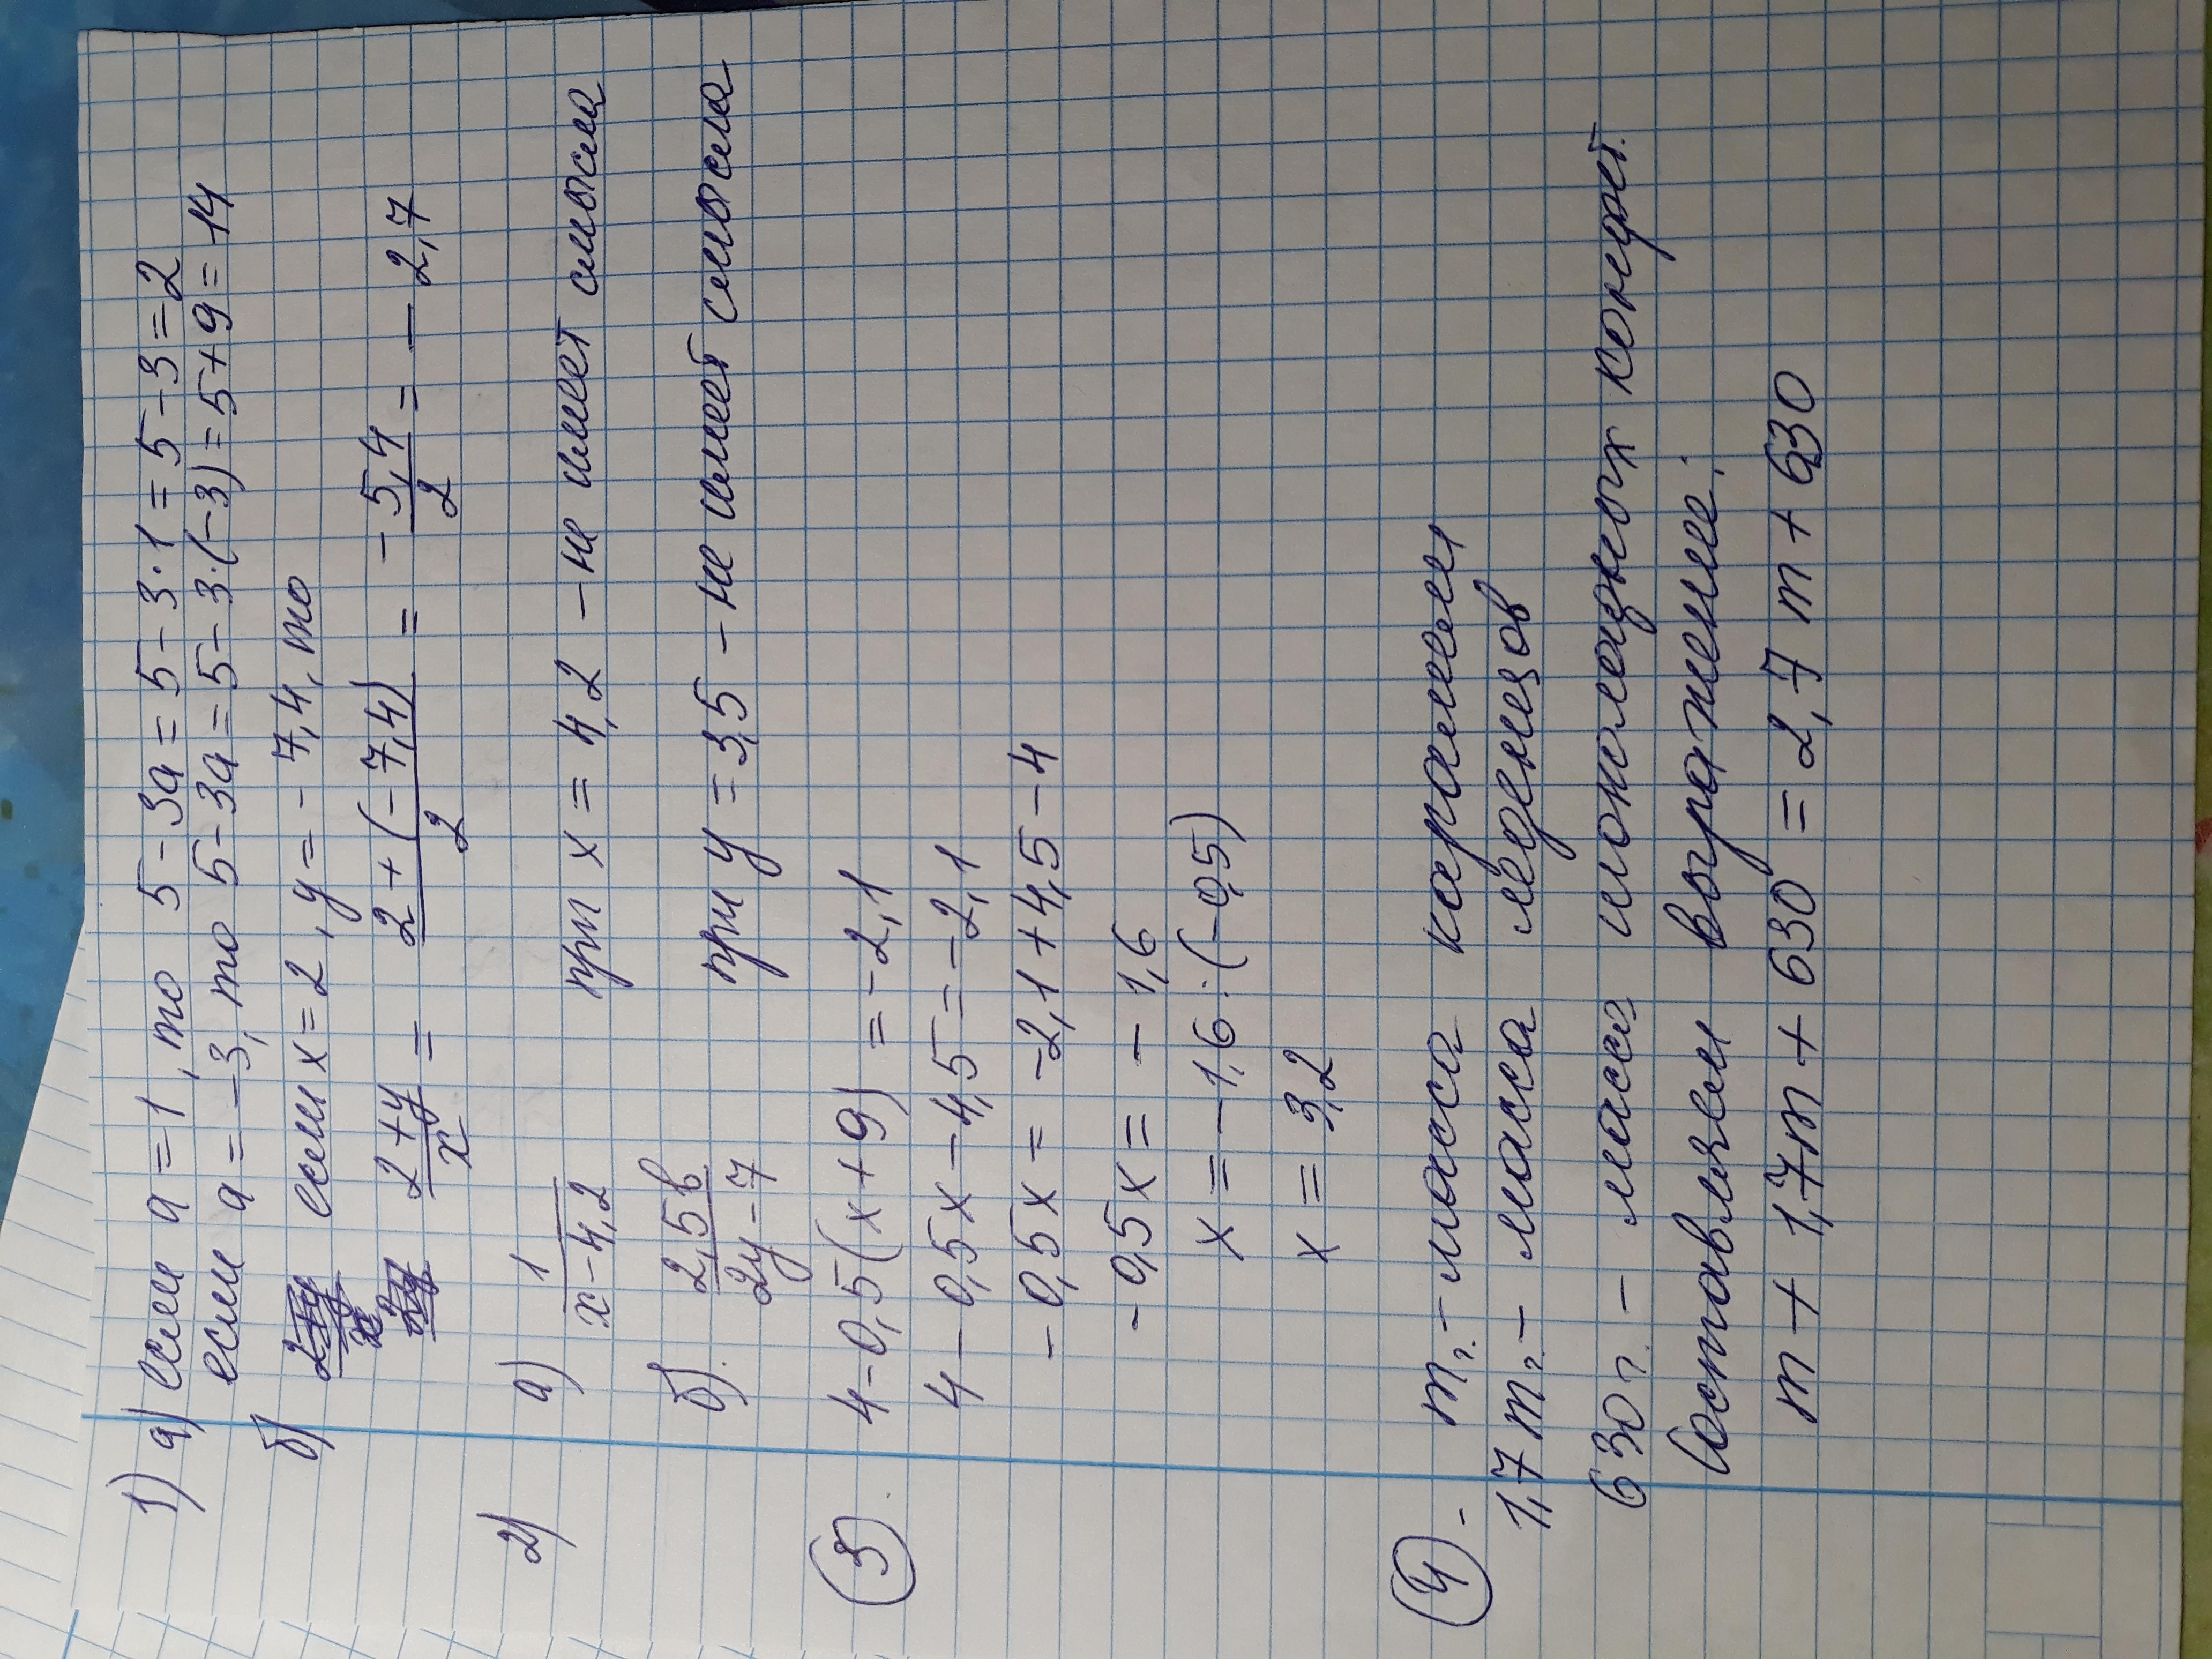 1) а) если a = 1, то 5 - 3a = 5 - 3 · 1 = 5 - 3 = 2
если a = -3, то 5 - 3a = 5 - 3 · (-3) = 5 + 9 = 14
б) если x = 2, y = - 7,4, то
(2 + y)/x = (2 + (-7,4))/2 = - 5,4/2 = - 2,7
2) а) 1/(x - 4,2) при x = 4,2 - не имеет смысла
б) 2,5в/(2y - 7) при y = 3,5 - не имеет смысла
3. 4 - 0,5(x + 9) = -2,1
4 - 0,5x - 4,5 = -2,1
-0,5x = -2,1 + 4,5 - 4
-0,5x = - 1,6
x = -1,6 : (-0,5)
x = 3,2
4. - m г. - масса карамели
1,7 m г. - масса леденцов
630 г. - масса шоколадных конфет.
Составляем выражение:
m + 1,7m + 630 = 2,7 m + 630